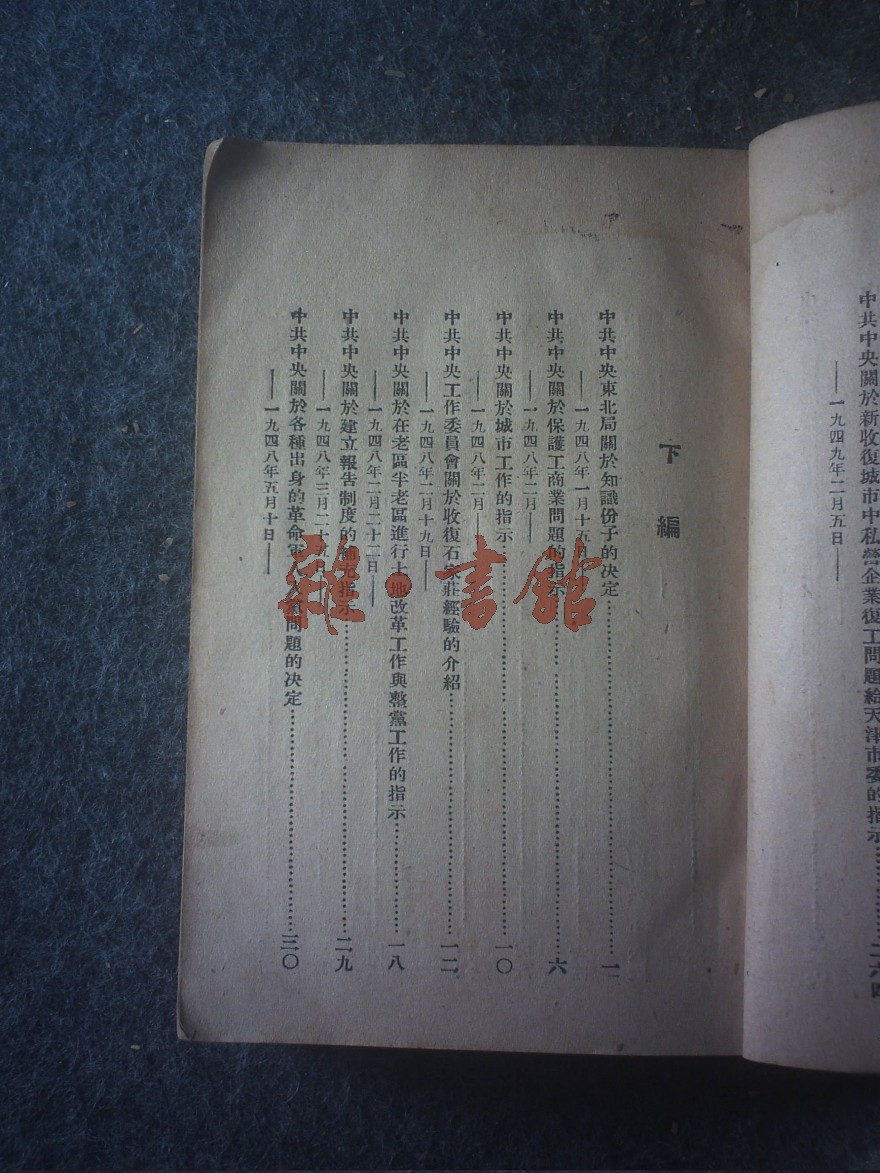 中共中央關於新收復城市中私營企業復工問題給天津市委的指示…………二六四
——一九四九年二月五日——
下編
中共中央東北局關於知識份子的決定…………一
——一九四八年一月十五日——
中共中央關於保護工商業問題的指示…………六
——一九四八年二月——
中共中央關於城市工作的指示…………一〇
——一九四八年二月——
中共中央工作委員會關於收復石家莊經驗的介紹…………一二
——一九四八年二月十九日——
中共中央關於在老區半老區進行土地改革工作與整黨工作的指示…………一八
——一九四八年二月二十二日——
中共中央關於建立報告制度的補充指示…………二九
——一九四八年三月二十五日——
中共中央關於各種出身的革命軍人入黨問題的決定…………三〇
——一九四八年五月十日——
雜·書館